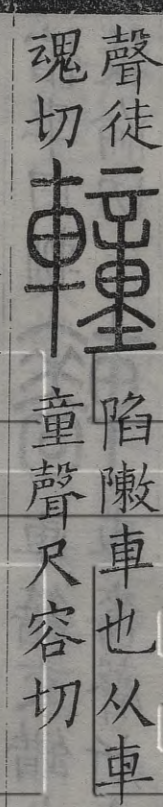 聲徒
魂切
䡴
陷敶車也从車
童聲尺容切